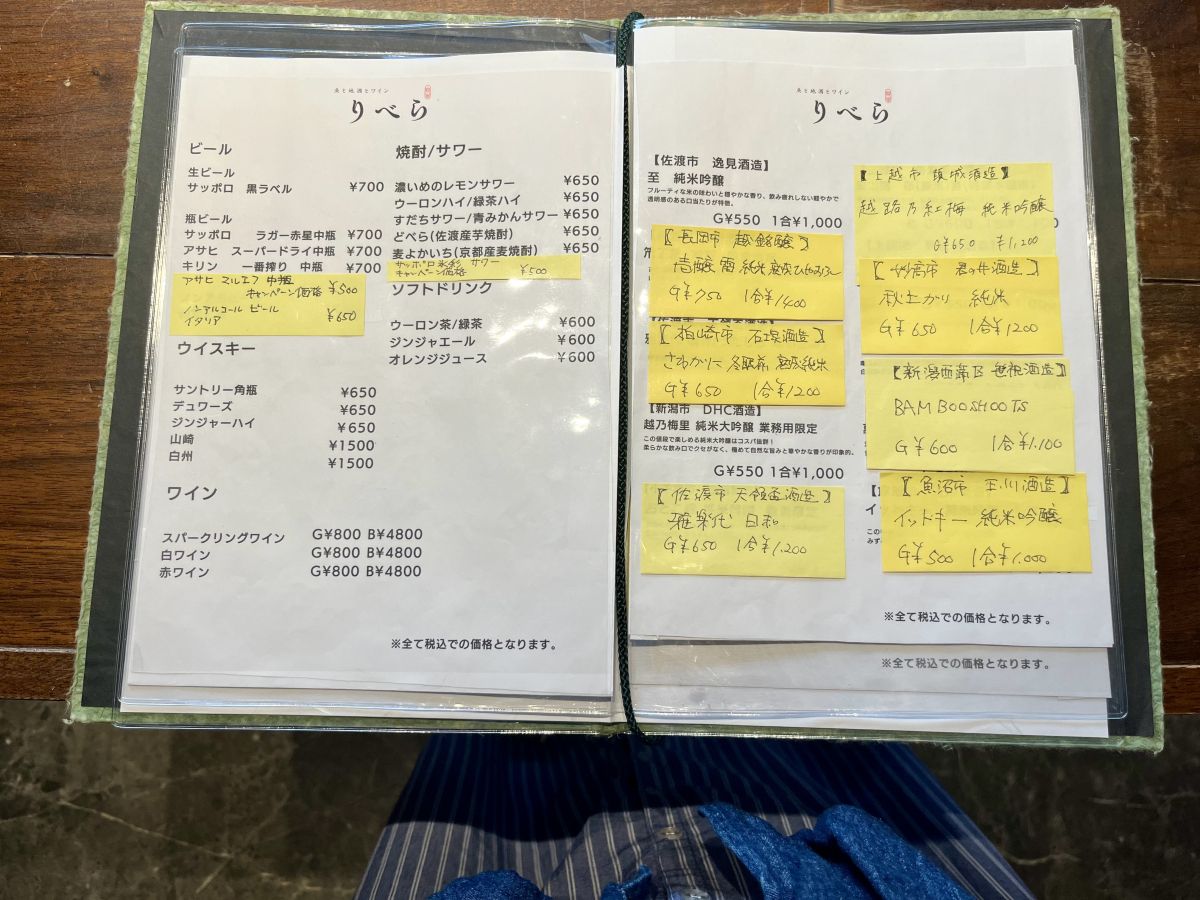 魚と地酒とワイン
りべら
ビール
生ビール
サッポロ 黒ラベル ¥700
瓶ビール
サッポロ ラガー赤星中瓶 ¥700
アサヒ スーパードライ中瓶 ¥700
キリン 一番搾り 中瓶 ¥700
アサヒ マルエフ 中瓶
キャンペーン価格 ¥500
ノンアルコール ビール
イタリア ¥650
ウイスキー
サントリー角瓶 ¥650
デュワーズ ¥650
ジンジャーハイ ¥650
山崎 ¥1500
白州 ¥1500
ワイン
スパークリングワイン G¥800 B¥4800
白ワイン G¥800 B¥4800
赤ワイン G¥800 B¥4800
焼酎/サワー
濃いめのレモンサワー ¥650
ウーロンハイ/緑茶ハイ ¥650
すだちサワー/青みかんサワー ¥650
どべら(佐渡産芋焼酎) ¥650
麦よかいち(京都産麦焼酎)
サッポロ 氷彩 サワー
キャンペーン価格 ¥500
ソフトドリンク
ウーロン茶/緑茶 ¥600
ジンジャエール ¥600
オレンジジュース ¥600
※全て税込での価格となります。
魚と地酒とワイン
りべら
【佐渡市 逸見酒造】
至 純米吟醸
フルーティな米の味わいと穏やかな香り、飲み疲れしない軽やかで
透明感のある口当たりが特徴。
G¥550 1合¥1,000
【長岡市 越銘醸】
純米
G¥750 1合¥1400
【柏崎市 石塚酒造】
純米
G¥650 1合¥1200
【新潟市 DHC酒造】
越乃梅里 純米大吟醸 業務用限定
この価段で楽しめる純米大吟醸はコスパ抜群!
柔らかな飲み口でクセがなく、極めて自然な旨みと華やかな香りが印象的。
G¥550 1合¥1,000
【佐渡市 天領盃酒造】
雅楽代 日和
G¥650 1合¥1,200
【上越市 頚城酒造】
越路乃紅梅 純米吟醸
G¥650 ¥1,200
【妙高市 君の井酒造】
秋上がり 純米
G¥650 1合¥1200
【新潟西蒲区 笹祝酒造】
BAMBOOSHOOTS
G¥600 1合¥1.100
【魚沼市 玉川酒造】
イットキー 純米吟醸
G¥500 1合¥1.000
※全て税込での価格となります。
※全て税込での価格となります。